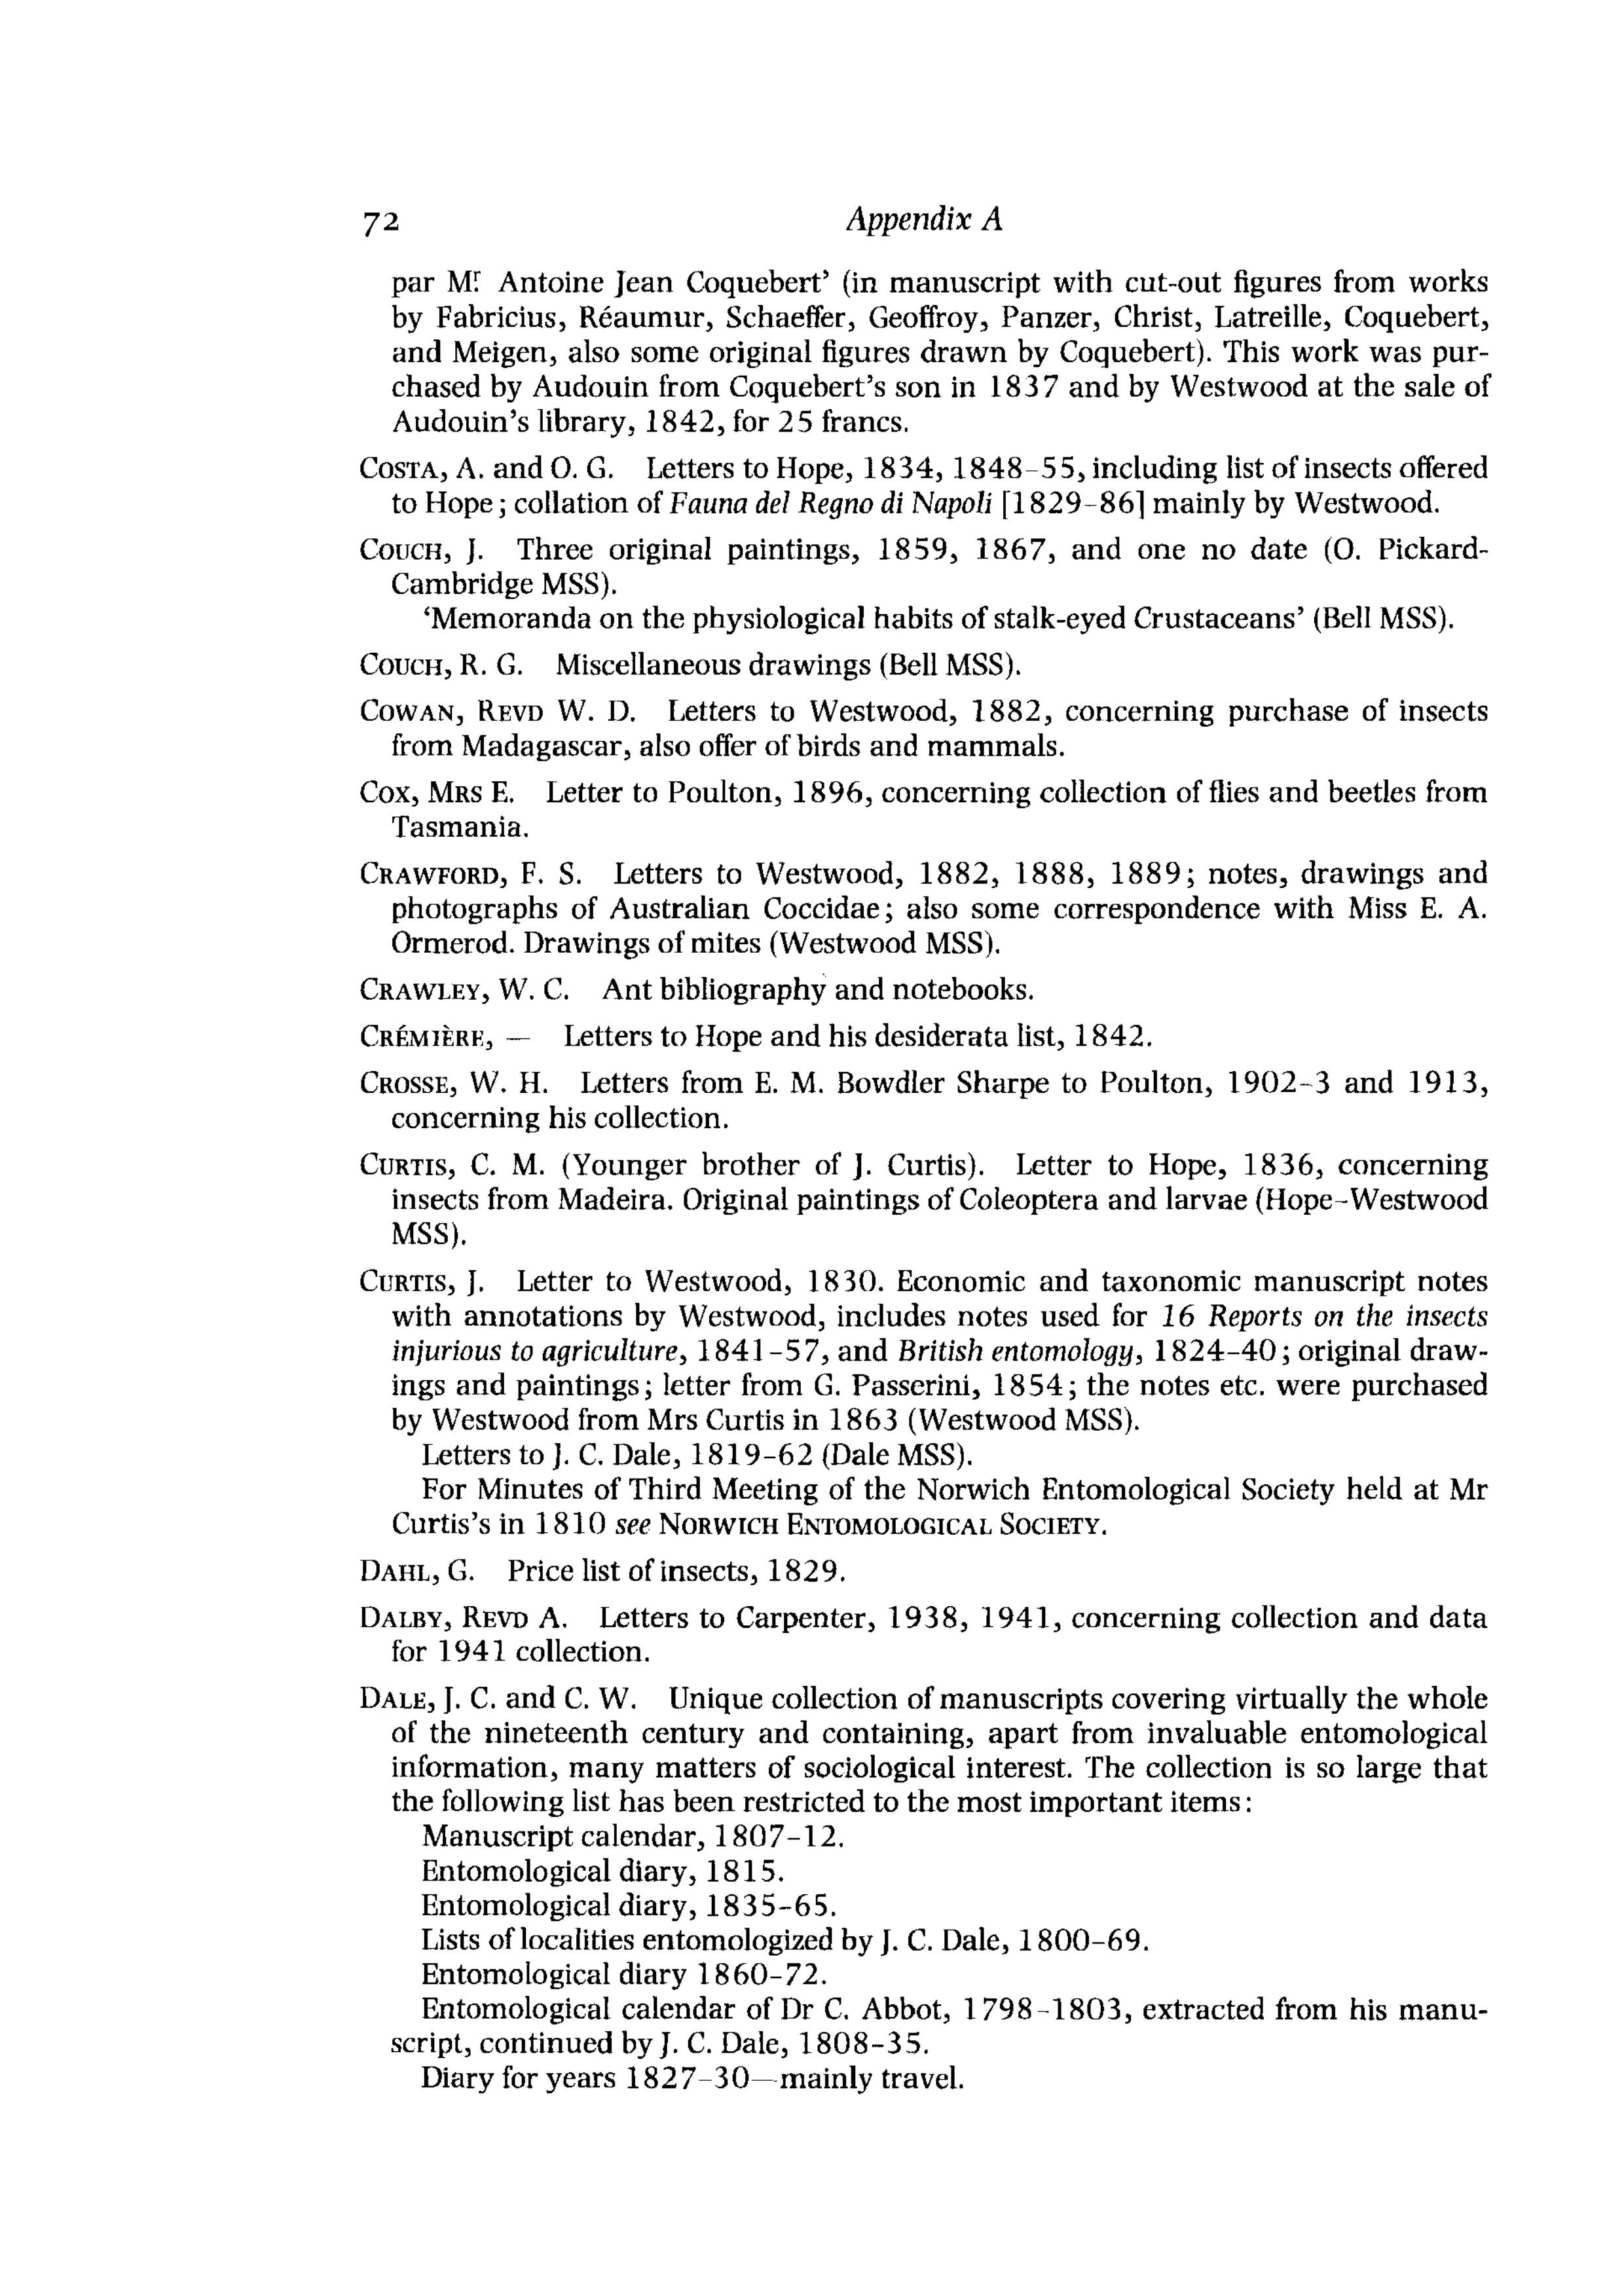 72 Appendix A
par Mr. Antoine Jean Coquebert’ (in manuscript with cut-out figures from works
by Fabricius, Réaumur, Schaeffer, Geoffroy, Panzer, Christ, Latreille, Coquebert,
and Meigen, also some original figures drawn by Coquebert). This work was pur-
chased by Audouin from Coquebert’s son in 1837 and by Westwood at the sale of
Audouin’s library, 1842, for 25 francs.
COSTA, A. and O. G. Letters to Hope, 1834, 1848–55, including list of insects offered
to Hope; collation of Fauna del Regno di Napoli [1829–86] mainly by Westwood.
COUCH, J. Three original paintings, 1859, 1867, and one no date (O. Pickard-
Cambridge MSS).
‘Memoranda on the physiological habits of stalk-eyed Crustaceans’ (Bell MSS).
COUCH, R. G. Miscellaneous drawings (Bell MSS).
COWAN, REVD W. D. Letters to Westwood, 1882, concerning purchase of insects
from Madagascar, also offer of birds and mammals.
COX, MRS E. Letter to Poulton, 1896, concerning collection of flies and beetles from
Tasmania.
CRAWFORD, F. S. Letters to Westwood, 1882, 1888, 1889; notes, drawings and
photographs of Australian Coccidae; also some correspondence with Miss E. A.
Ormerod. Drawings of mites (Westwood MSS).
CRAWLEY, W. C. Ant bibliography and notebooks.
CRÉMIÈRE, — Letters to Hope and his desiderata list, 1842.
CROSSE, W. H. Letters from E. M. Bowdler Sharpe to Poulton, 1902–3 and 1913,
concerning his collection.
CURTIS, C. M. (Younger brother of J. Curtis). Letter to Hope, 1836, concerning
insects from Madeira. Original paintings of Coleoptera and larvae (Hope–Westwood
MSS).
CURTIS, J. Letter to Westwood, 1830. Economic and taxonomic manuscript notes
with annotations by Westwood, includes notes used for 16 Reports on the insects
injurious to agriculture, 1841–57, and British entomology, 1824–40; original draw-
ings and paintings; letter from G. Passerini, 1854; the notes etc. were purchased
by Westwood from Mrs Curtis in 1863 (Westwood MSS).
Letters to J. C. Dale, 1819–62 (Dale MSS).
For Minutes of Third Meeting of the Norwich Entomological Society held at Mr
Curtis’s in 1810 see NORWICH ENTOMOLOGICAL SOCIETY.
DAHL, G. Price list of insects, 1829.
DALBY, REVD A. Letters to Carpenter, 1938, 1941, concerning collection and data
for 1941 collection.
DALE, J. C. and C. W. Unique collection of manuscripts covering virtually the whole
of the nineteenth century and containing, apart from invaluable entomological
information, many matters of sociological interest. The collection is so large that
the following list has been restricted to the most important items:
Manuscript calendar, 1807–12.
Entomological diary, 1815.
Entomological diary, 1835–65.
Lists of localities entomologized by J. C. Dale, 1800–69.
Entomological diary 1860–72.
Entomological calendar of Dr C. Abbot, 1798–1803, extracted from his manu-
script, continued by J. C. Dale, 1808–35.
Diary for years 1827–30—mainly travel.